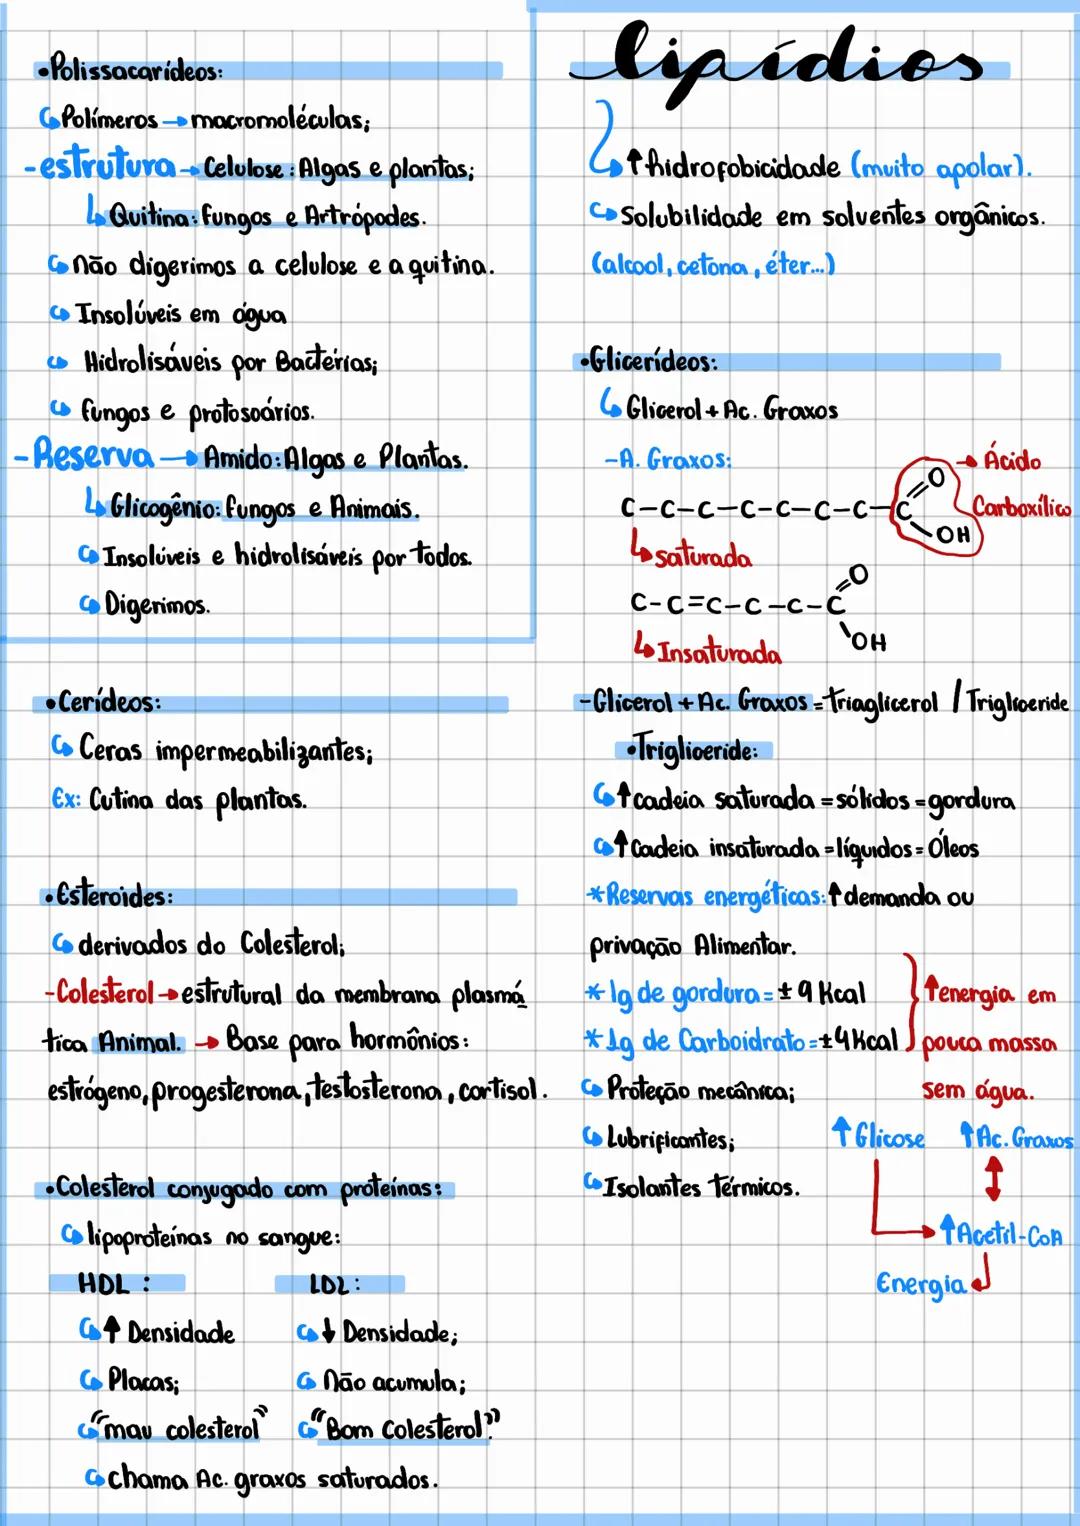 •Polissacarídeos:
Polímeros → macromoléculas;
-estrutura → Celulose: Algas e plantas;
Quitina: fungos e Artrópodes.
não digerimos a celulose e a quitina.
Insolúveis em água
Hidrolisáveis por Bactérias;
fungos e protosoários.
-Reserva → Amido: Algas e Plantas.
Glicogênio: fungos e Animais.
Insolúveis e hidrolisáveis por todos.
Digerimos.
•Cerídeos:
Ceras impermeabilizantes;
Ex: Cutina das plantas.
•Esteroides:
derivados do Colesterol;
-Colesterol → estrutural da membrana plasmá
tica Animal. → Base para hormônios:
estrógeno, progesterona, testosterona, cortisol.
•Colesterol conjugado com proteínas:
lipoproteínas no sangue:
HDL: LDL:
↑ Densidade ↓ Densidade;
Placas; Não acumula;
"mau colesterol" "Bom Colesterol".
chama Ac. graxos saturados.
lipídios
↑hidrofobicidade (muito apolar).
Solubilidade em solventes orgânicos.
(alcool, cetona, éter...)
•Glicerídeos:
Glicerol + Ac. Graxos
-A. Graxos:
C-C-C-C-C-C-C-C O OH → Ácido Carboxílico
saturada
C-C=C-C-C-C O OH
Insaturada
-Glicerol + Ac. Graxos = triaglicerol / Triglioeride
•Triglioeride:
↑cadeia saturada = sólidos = gordura
↑Cadeia insaturada = líquidos = Óleos
*Reservas energéticas: ↑demanda ou
privação Alimentar.
*1g de gordura = ± 9 Kcal
*1g de Carboidrato = ±4Kcal
↑energia em
pouca massa
sem água.
Proteção mecânica;
Lubrificantes;
Isolantes térmicos.
↑Glicose ↑Ac. Graxos
↑Acetil-CoA
Energia